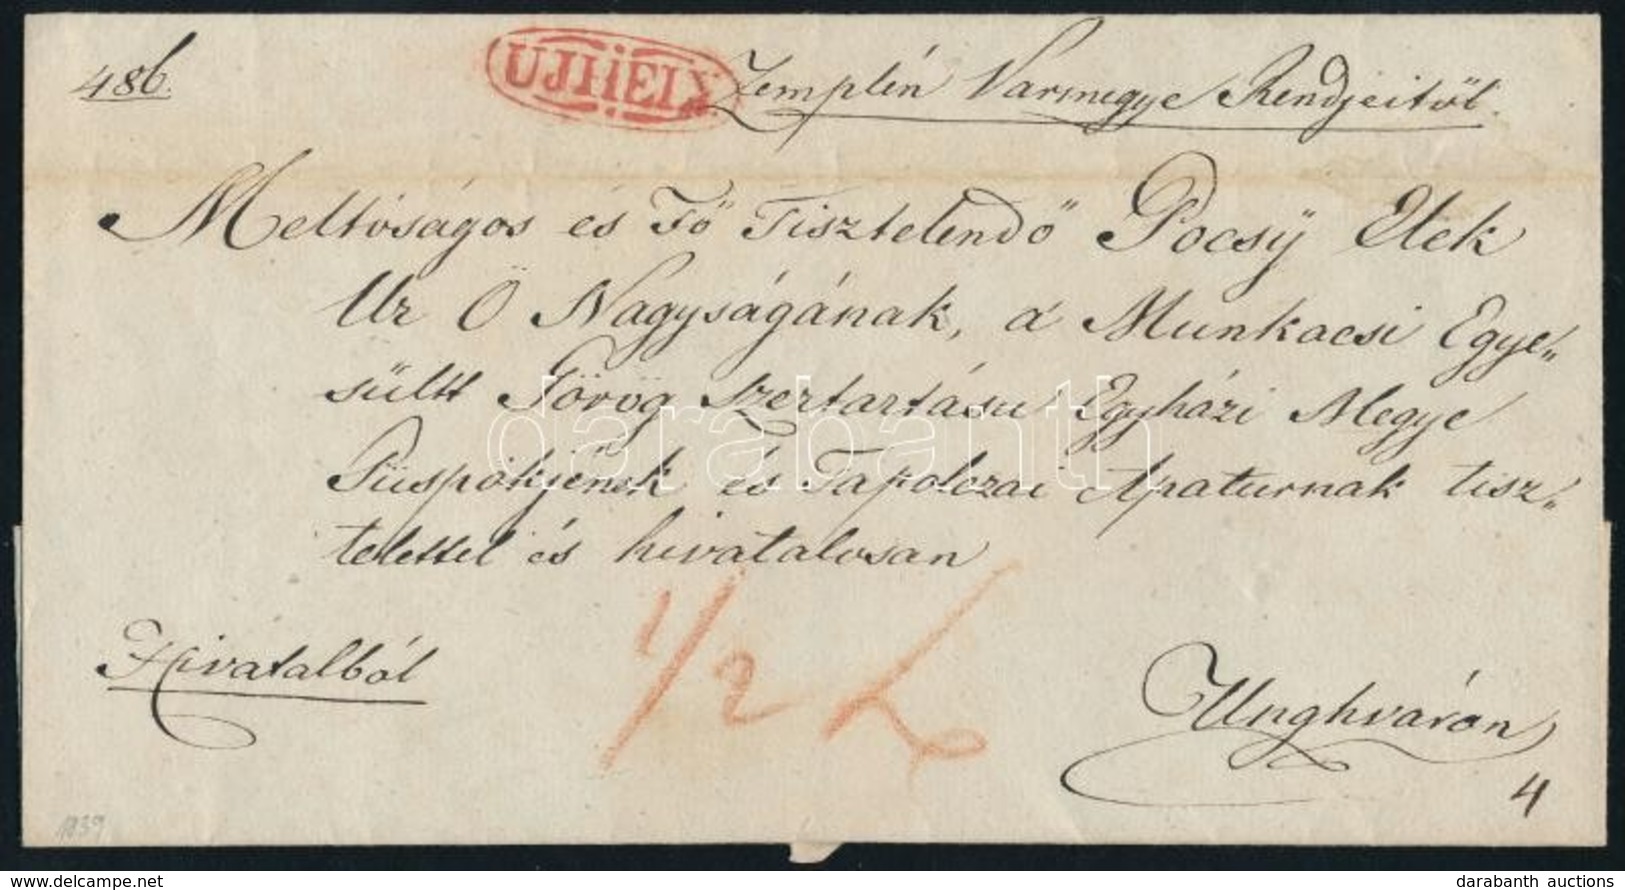 486.
UJHELY
Zemplén Varmegye Rendjeitől.
Meltóságos és Fő Tisztelendő Pocsÿ Elek
Ur Ő Nagyságának, a Munkacsi Egye„
sültt Görög Szertartásu Egyházi Megye
Püspökjének és Tapolczai Apaturnak tisz„
telettel és hivatalosan
Hivatalból
1/2 L
Unghváron
4
1839
darabanth
www.delcampe.net
darabanth auctions